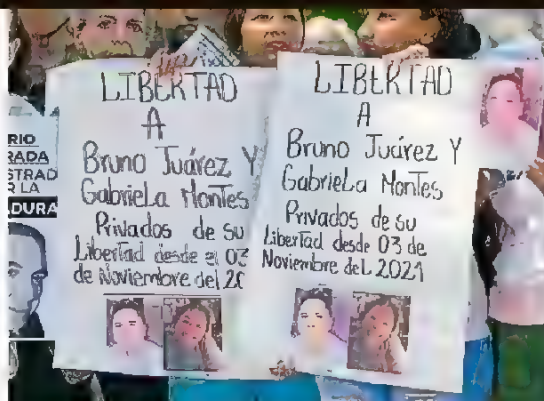 RIO
RADA
STRAD
R LA
DURA
LIBERTAD
A
Bruno Juárez Y
Gabriela Montes
Privados de su
Libertad desde el 03
de Noviembre del 20
LIBERTAD
A
Bruno Juárez Y
Gabriela Montes
Privados de su
Libertad desde 03 de
Noviembre del 2021